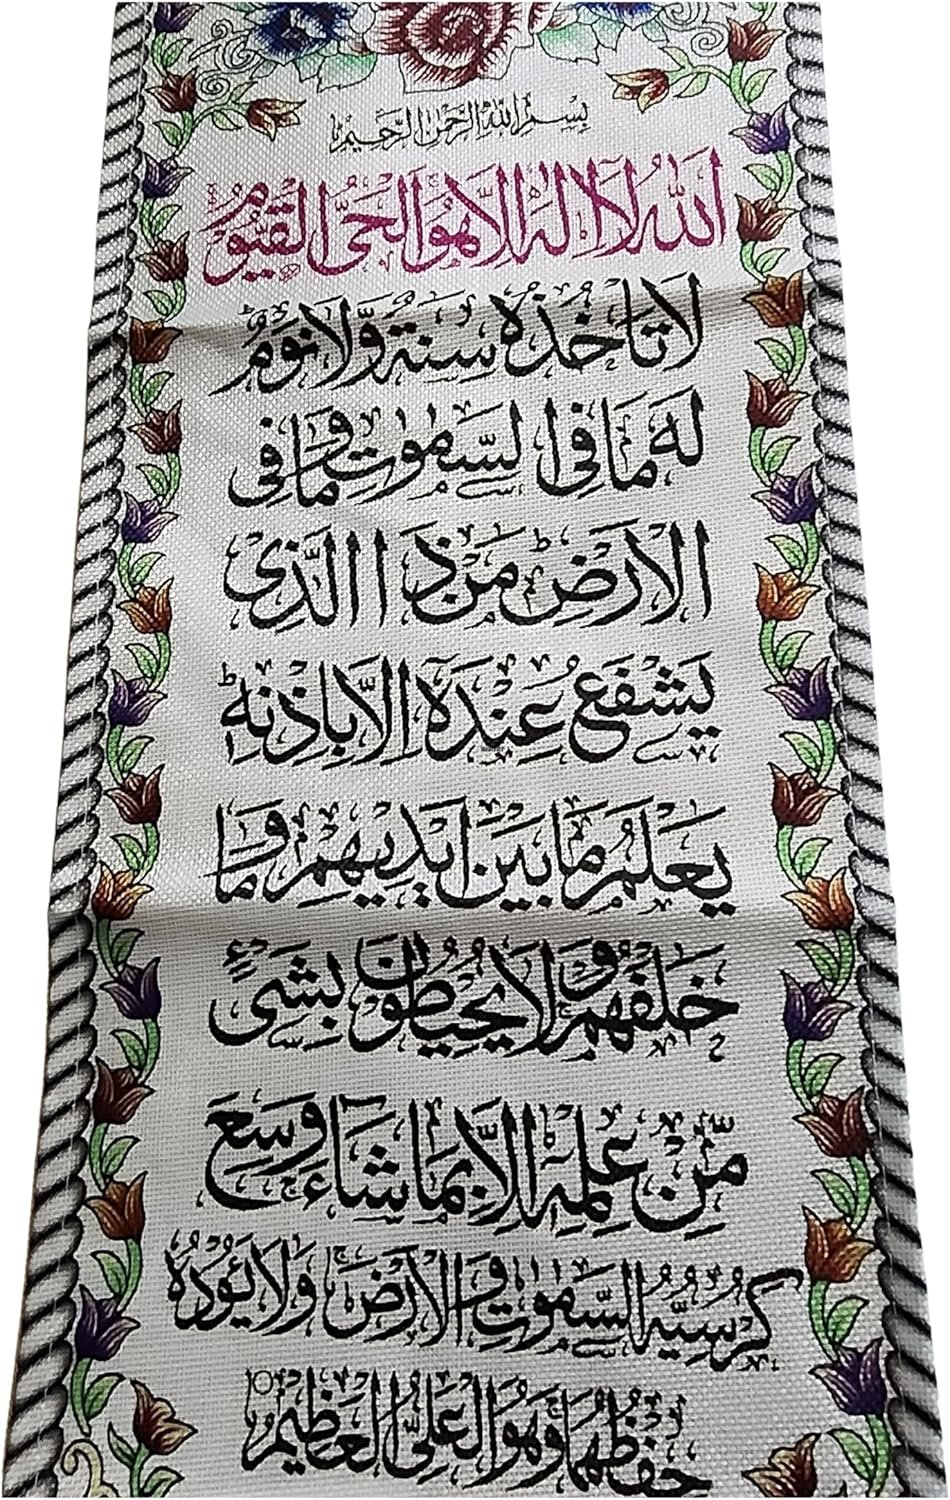 بِسْمِ اللهِ الرَّحْمٰنِ الرَّحِيْمِ
اَللهُ لَا اِلٰهَ اِلَّا هُوَ الْحَيُّ الْقَيُّوْمُ
لَا تَاْخُذُهٗ سِنَةٌ وَّلَا نَوْمٌ ؕ
لَهٗ مَا فِي السَّمٰوٰتِ وَمَا فِي
الْاَرْضِ ؕ مَنْ ذَا الَّذِيْ
يَشْفَعُ عِنْدَهٗٓ اِلَّا بِاِذْنِهٖ ؕ
يَعْلَمُ مَا بَيْنَ اَيْدِيْهِمْ وَمَا
خَلْفَهُمْ ۚ وَلَا يُحِيْطُوْنَ بِشَيْءٍ
مِّنْ عِلْمِهٖٓ اِلَّا بِمَا شَآءَ ۚ وَسِعَ
كُرْسِيُّهُ السَّمٰوٰتِ وَالْاَرْضَ ۚ وَلَا يَـُٔوْدُهٗ
حِفْظُهُمَا ۚ وَهُوَ الْعَلِيُّ الْعَظِيْمُ